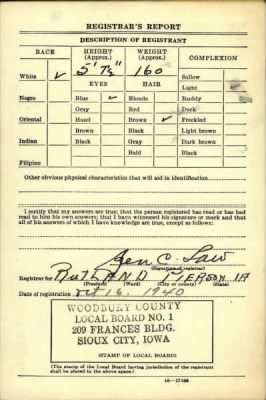 REGISTRAR'S REPORT
DESCRIPTION OF REGISTRANT
RACE HEIGHT (Approx.) WEIGHT (Approx.) COMPLEXION
White ✓ 5' 7½" 160 Sallow
EYES HAIR Light ✓
Negro Blue ✓ Blonde Ruddy
Gray Red Dark
Oriental Hazel Brown ✓ Freckled
Brown Black Light brown
Indian Black Gray Dark brown
Bald Black
Filipino
Other obvious physical characteristics that will aid in identification
I certify that my answers are true; that the person registered has read or has had read to him his own answers; that I have witnessed his signature or mark and that all of his answers of which I have knowledge are true, except as follows:
Geo. C. Law
(Signature of registrar)
Registrar for RUTLAND PIERSON IA
(Precinct) (Ward) (City or county) (State)
Date of registration Oct 16. 1940
WOODBURY COUNTY
LOCAL BOARD NO. 1
209 FRANCES BLDG.
SIOUX CITY, IOWA
(STAMP OF LOCAL BOARD)
(The stamp of the Local Board having jurisdiction of the registrant
shall be placed in the above space.)